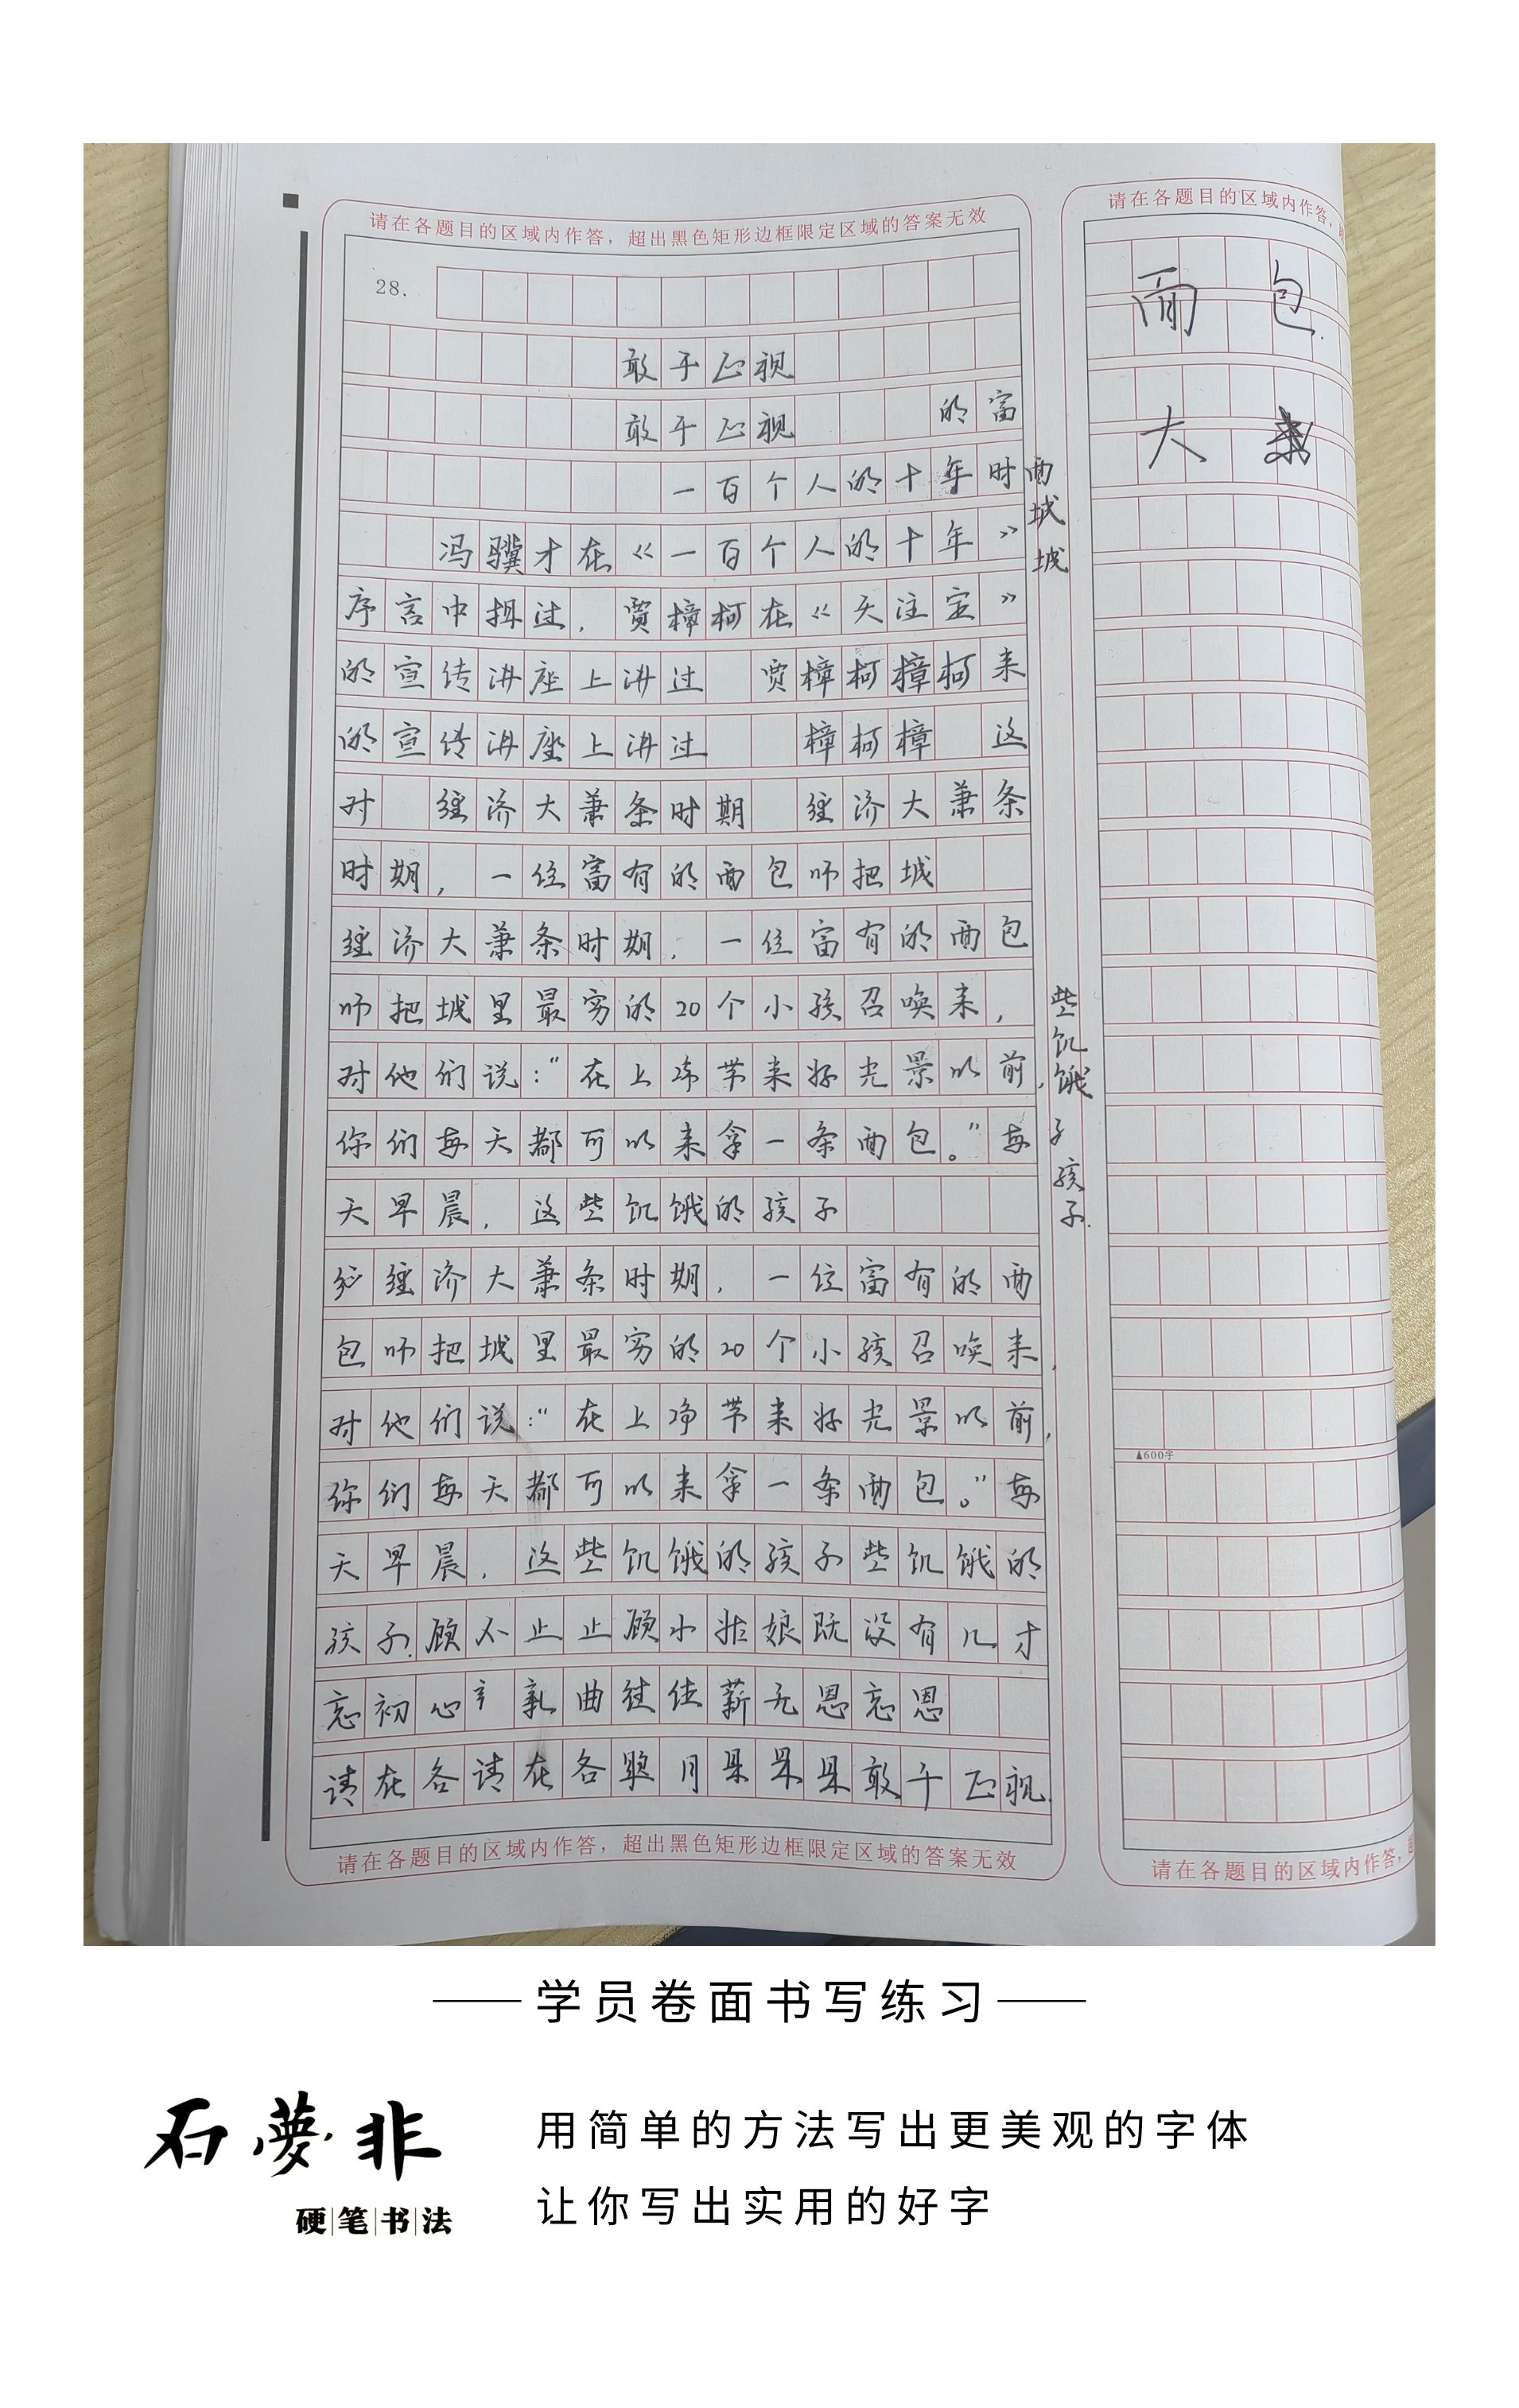 请在各题目的区域内作答，超出黑色矩形边框限定区域的答案无效
28.
敢于正视
敢于正视 的富
一百个人的十年时
冯骥才在《一百个人的十年》
序言中提过，贾樟柯在《天注定》
的宣传讲座上讲过 贾樟柯樟柯来
的宣传讲座上讲过 樟柯樟 这
对 经济大萧条时期 经济大萧条
时期，一位富有的面包师把城
经济大萧条时期，一位富有的面包
师把城里最穷的20个小孩召唤来，
对他们说：“在上帝带来好光景以前，
你们每天都可以来拿一条面包。”每
天早晨，这些饥饿的孩子
经济大萧条时期，一位富有的面
包师把城里最穷的20个小孩召唤来，
对他们说：“在上帝带来好光景以前，
你们每天都可以来拿一条面包。”每
天早晨，这些饥饿的孩子些饥饿的
孩子顾不止止顾小姑娘既没有几才
忘初心 曲往往薪无恩忘恩
请在各请在各题月果果果敢于正视
请在各题目的区域内作答，超出黑色矩形边框限定区域的答案无效
面
城
城
些
饥
饿
子
孩
子
请在各题目的区域内作答，
面包
大
▲600字
请在各题目的区域内作答，
学员卷面书写练习
石夢非
硬笔书法
用简单的方法写出更美观的字体
让你写出实用的好字